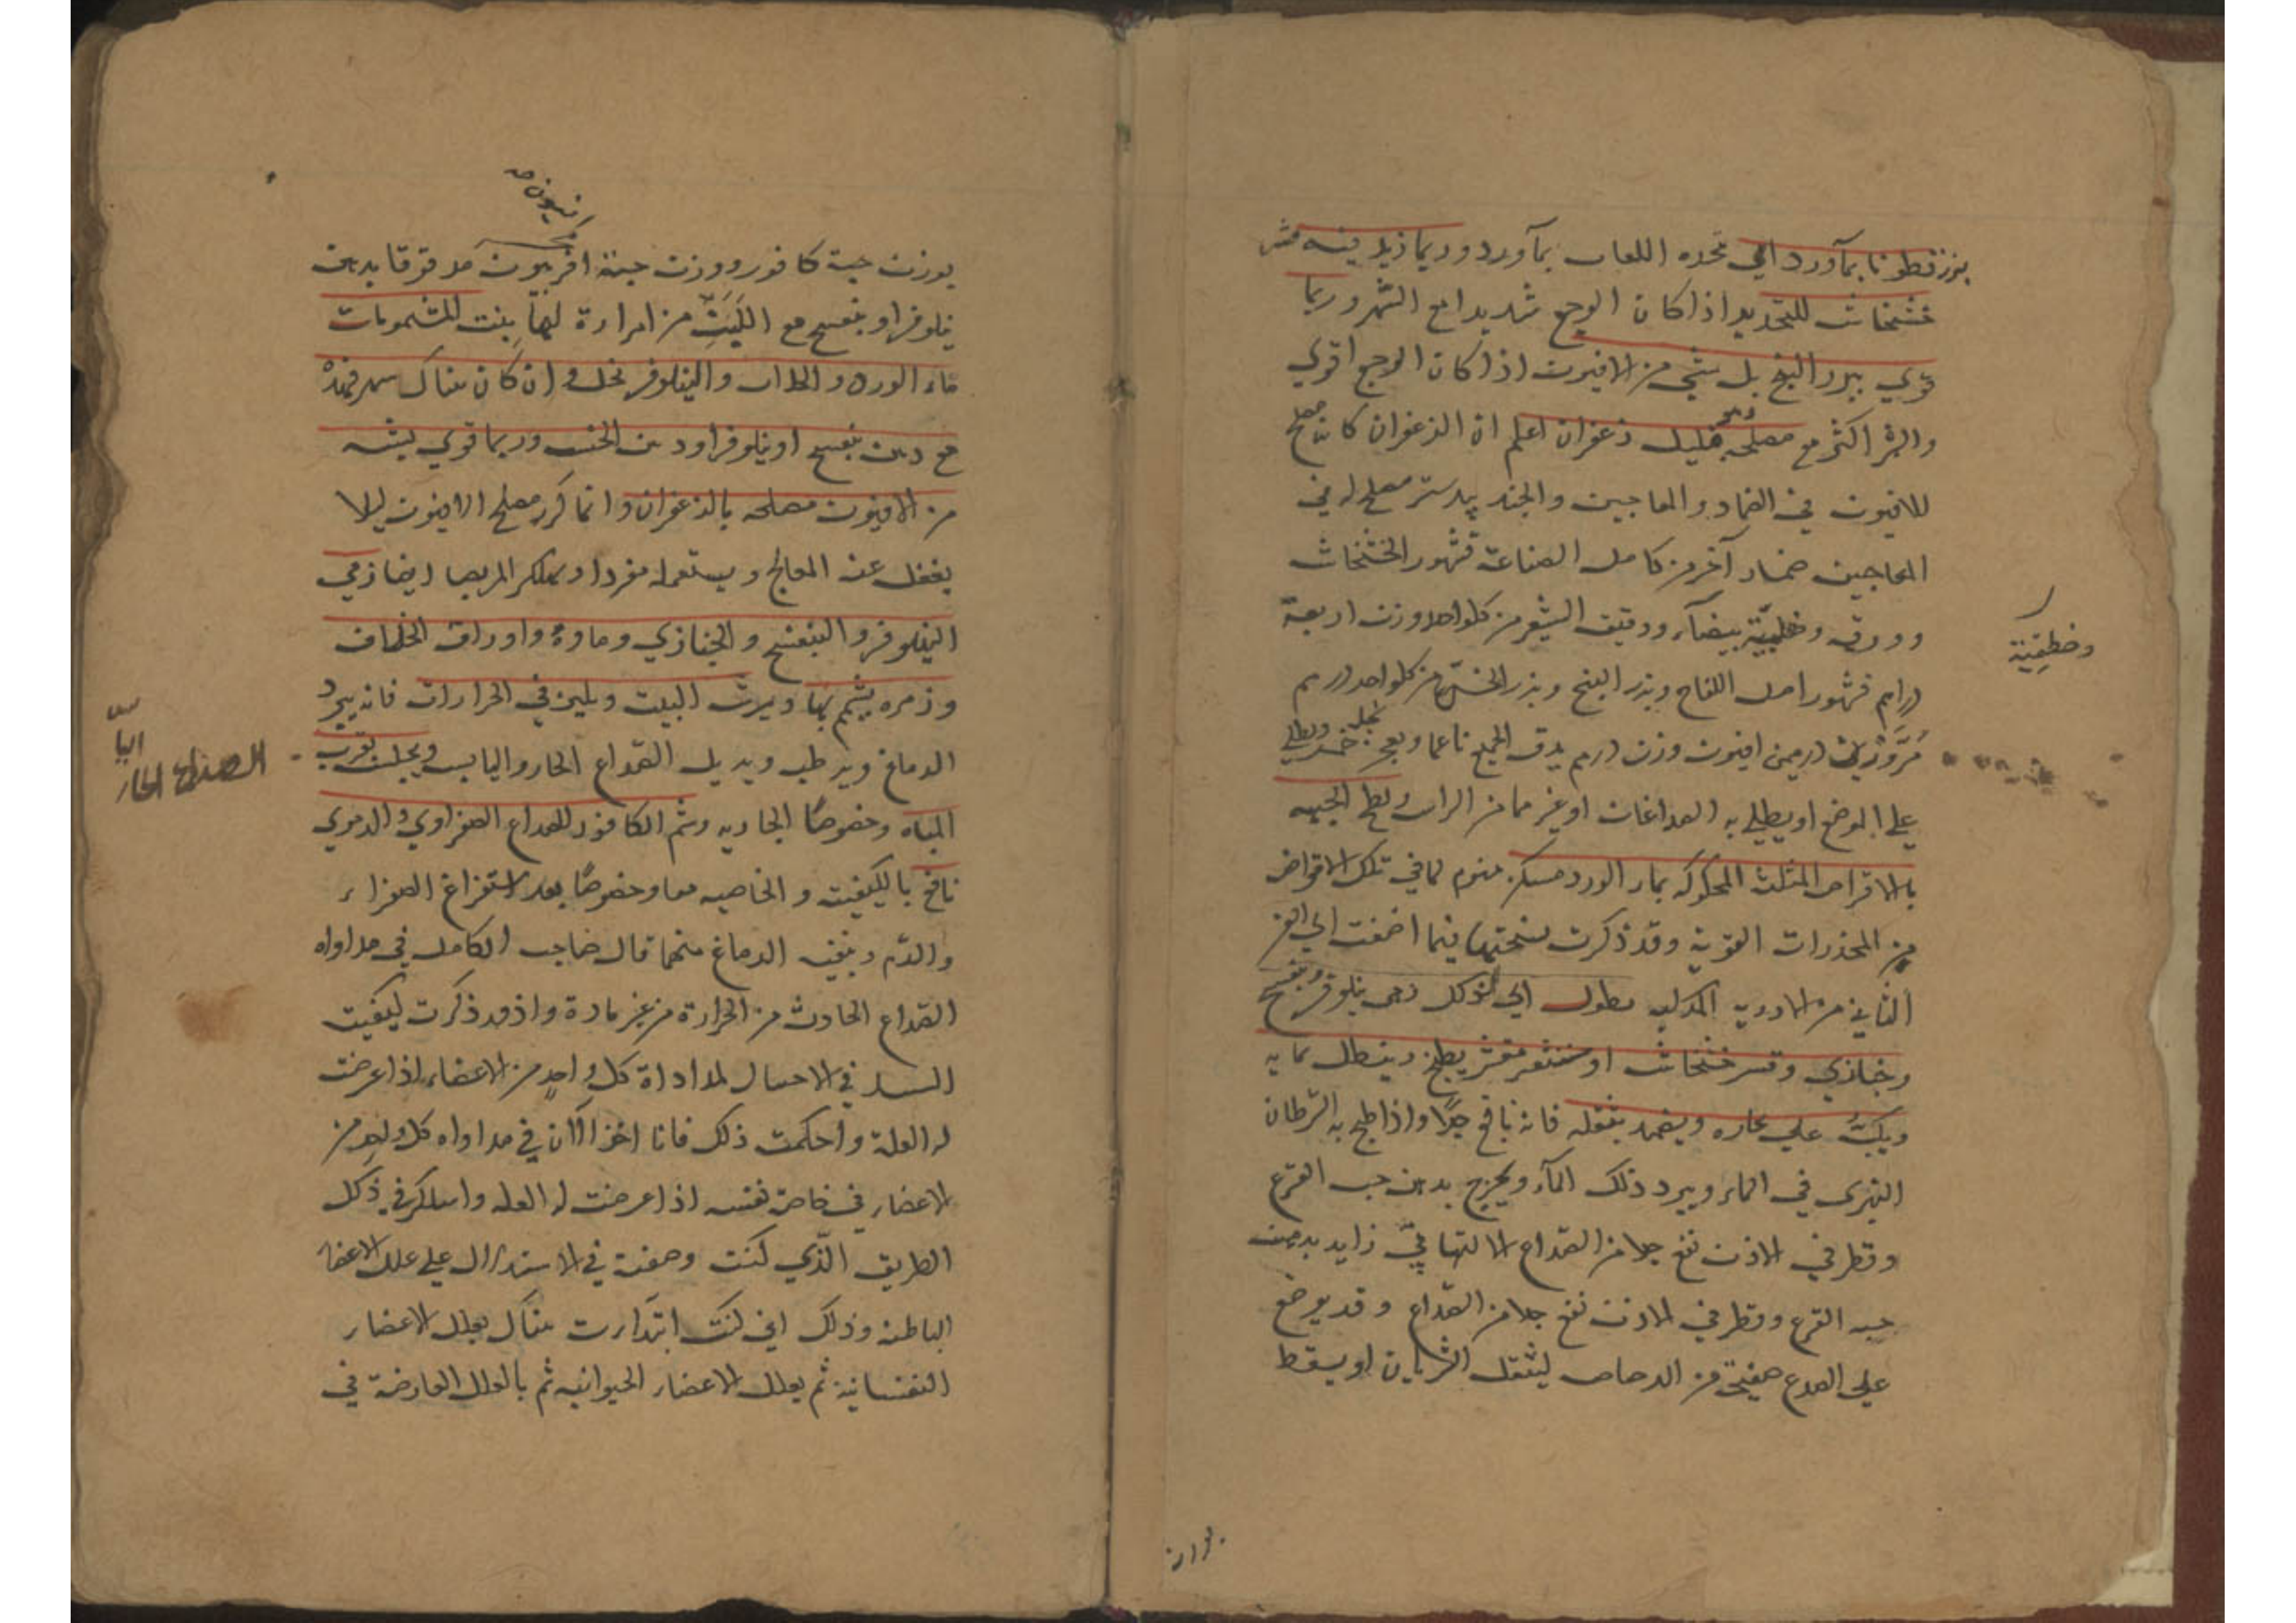 بزرقطونا بمآورد اي نخده اللعاب بمآورد وربما زيد فيه قشر
خشخاش للتخدير اذا كان الوجع شديدا مع السهر وربما
قوي ببزر البنج بل بشي من الافيون اذا كان الوجع اقوي
والسهر اكثر مع مصلحه قليل زعفران اعلم ان الزعفران كان مصلح
للافيون في الضماد والمعاجين والجند بيدستر مصلح له في
المعاجين ضماد آخر من كامل الصناعة قشور الخشخاش
وورقه وخطمية بيضآء ودقيق الشعير من كل واحد وزن اربعة
دراهم قشور اصل اللفاح وبزر البنج وبزر الخسّ من كل واحد درهم
وخطمية
درهمين افيون وزن درهم يدق الجميع ناعما ويعجن بخل خمر ويطلي
علي الموضع او يطلي به الصداغان او غيرهما من الراس ويطلي الجبهه
بالاقراص المثلث المحكوكه بماء الورد مسكن منوم لما في تلك الاقراص
من المخدرات القوية وقد ذكرت نسختها فيما اضفت الي الفن
الثاني من الادوية المركبه نطول اي لذلك زهر نيلوفر وبنفسج
وخبازي وقشر خشخاش او شعير مقشر يطبخ وينطل بمايه
ويكبّ علي بخاره ويضمد بثفله فانه نافع جدًا واذا طبخ به السرطان
النهري في الماء ويبرد ذلك المآء ويخرج بدهن حب القرع
وقطر في الاذن نفع جدا من الصداع الالتهابيّ زايد بدهن
حب القرع وقطر في الاذن نفع جدا من الصداع وقد يوضع
علي الصدع صفيحة من الرصاص ليثقل الشريان او يسقط
بوزن
افيون صح
بوزن حبة كافور ووزن حبة افربيون مدقوقا بدهن
نيلوفر او بنفسج مع اللبن من امراة لها بنت المشمومات
ماء الورد والخلاف والنيلوفر بخل وان كان هناك سهر فهذه
مع دهن بنفسج او نيلوفر او دهن الخس وربما قوي بشيء
من الافيون مصلحه بالزعفران وانما كرر مصلح الافيون ليلا
يغفل عنه المعالج ويستعمله مفردا ويهلك المريض ايضا زهر
النيلوفر والبنفسج والخبازي وماوه واوراق الخلاف
وزهره يشم بها ويرش البيت ويلين في الحرارات فانه يبرد
الدماغ ويرطب ويزيل الصداع الحار واليابس ويجلس بقرب
الصداع الحار
المياه وخصوصًا الجاريه وشم الكافور للصداع الصفراوي والدموي
نافع بالكيفيت والخاصيه معا وخصوصًا بعد استفراغ الصفراء
والدّم وتنقيه الدماغ منهما قال صاحب الكامل في مداواه
الصداع الحادث من الحرارة من غير مادة واذ قد ذكرت كيفيت
في الاحسال لمداواة كل واحدٍ من الاعضاء اذا عرضت
له العلة واحكمت ذلك فانا اخذ الآن في مداواه كل واحد من
الاعضاء في خاصة نفسه اذا عرضت له العله واسلك في ذلك
الطريق الّذي كنت وصفته في الاستدلال علي علل الاعضاء
الباطنه وذلك اني كنت ابتدات هناك بعلل الاعضاء
النفسانية ثم بعلل الاعضاء الحيوانيه ثم بالعلل العارضة في